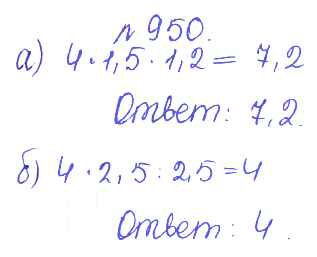 п 950.
а) 4 · 1,5 · 1,2 = 7,2
Ответ: 7,2.
б) 4 · 2,5 : 2,5 = 4
Ответ: 4.